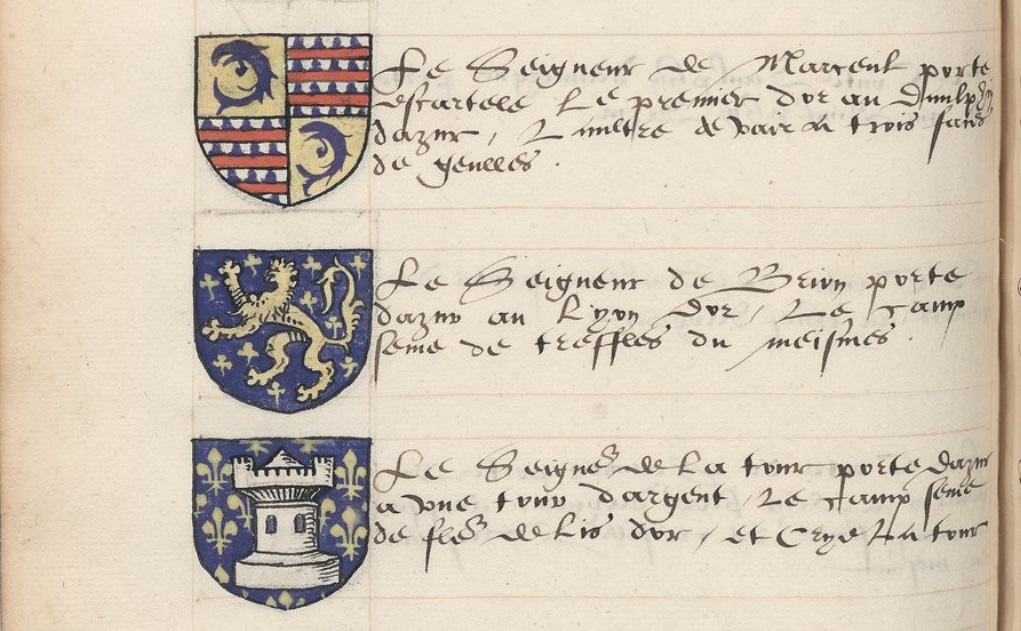 Le Seigneur de Marceul porte
escartele Le premier dor au daulphin
dazur, Laultre de vair a trois fasces
de geulles.
Le Seigneur de Brion porte
dazur au Lyon dor, Le camp
seme de treffles du meismes.
Le Seigner de La tour porte dazur
a vne tour dargent, Le camp seme
de fles de Lis dor, et Crye La tour